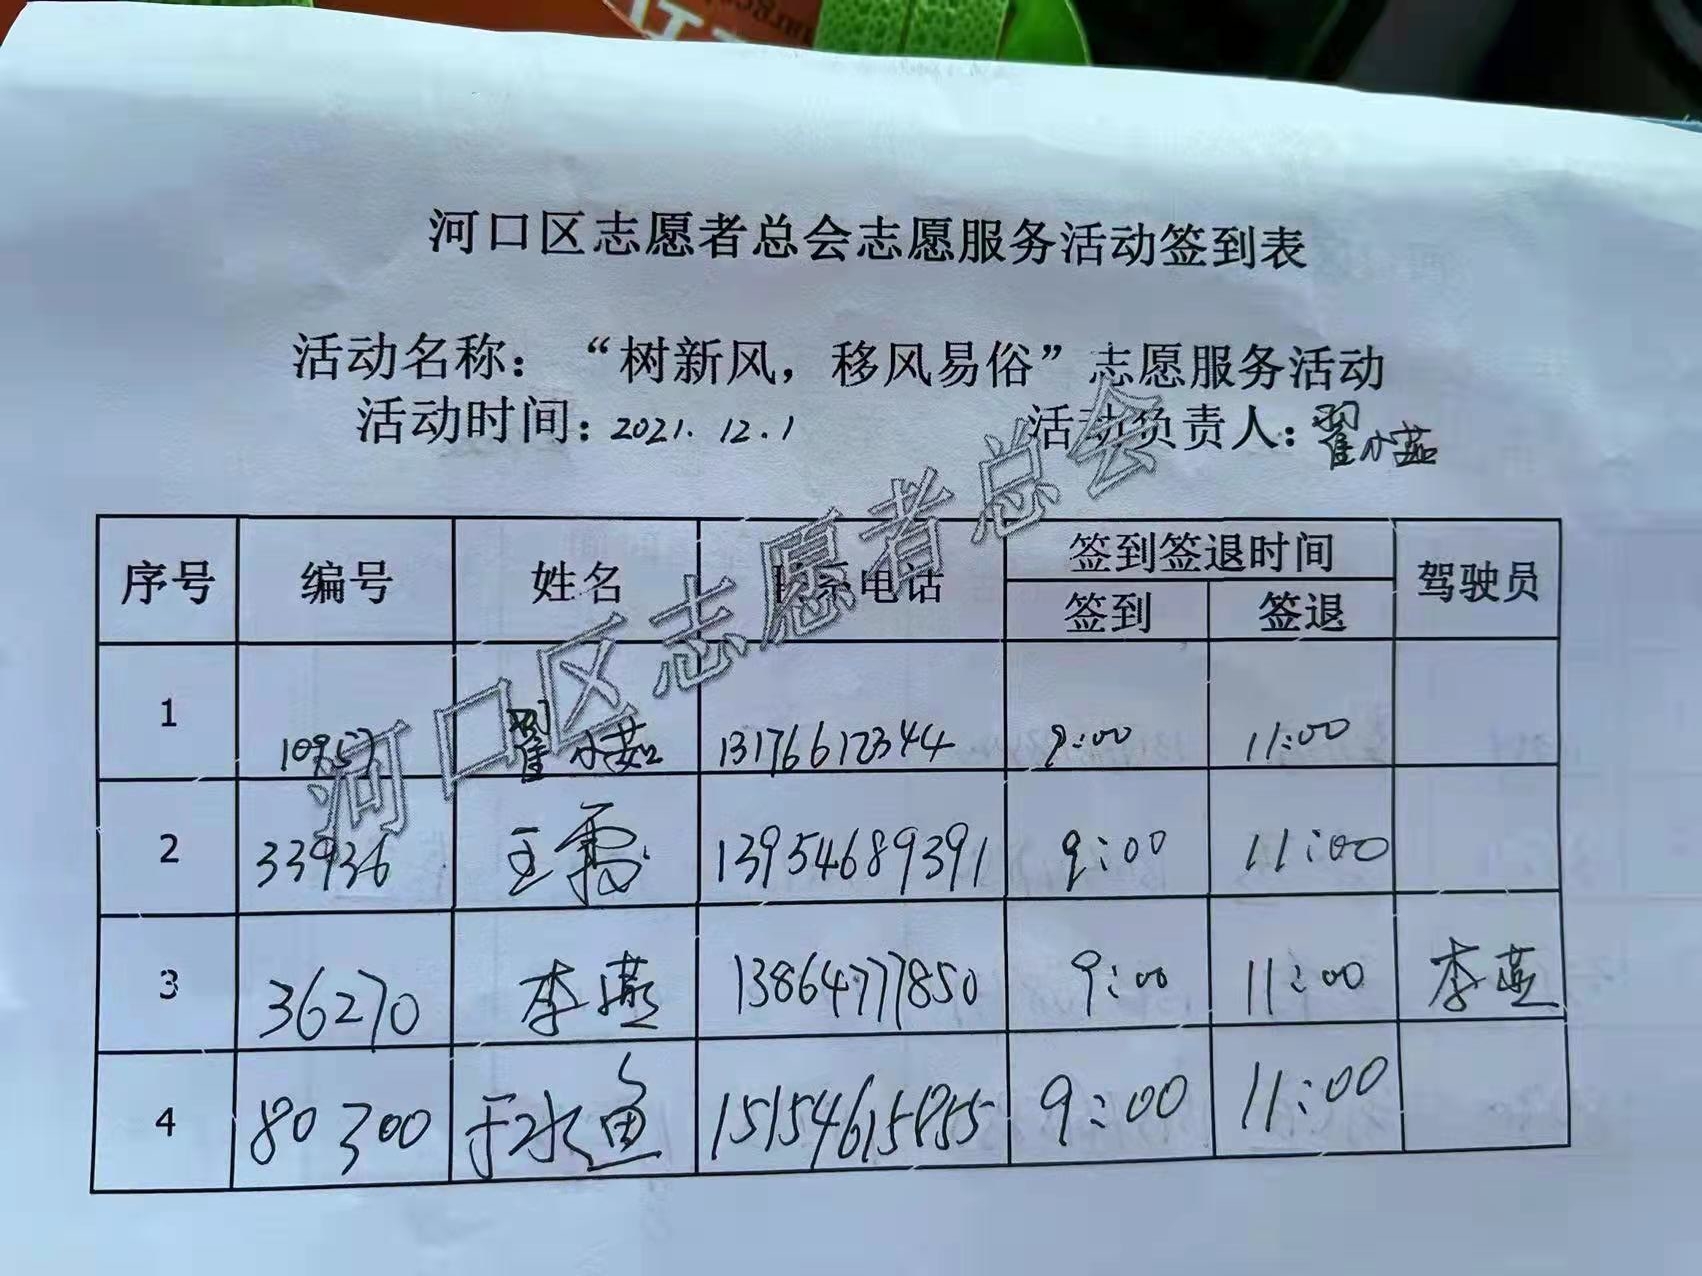 河口区志愿者总会志愿服务活动签到表
活动名称：“树新风，移风易俗”志愿服务活动
活动时间：2021.12.1 活动负责人：翟小茹
序号 编号 姓名 联系电话 签到签退时间 驾驶员
签到 签退
1 10957 翟小茹 13176612344 9:00 11:00
2 33936 王霞 13954689391 9:00 11:00
3 36270 李燕 13864777850 9:00 11:00 李燕
4 80300 于水 9:00 11:00
河口区志愿者总会